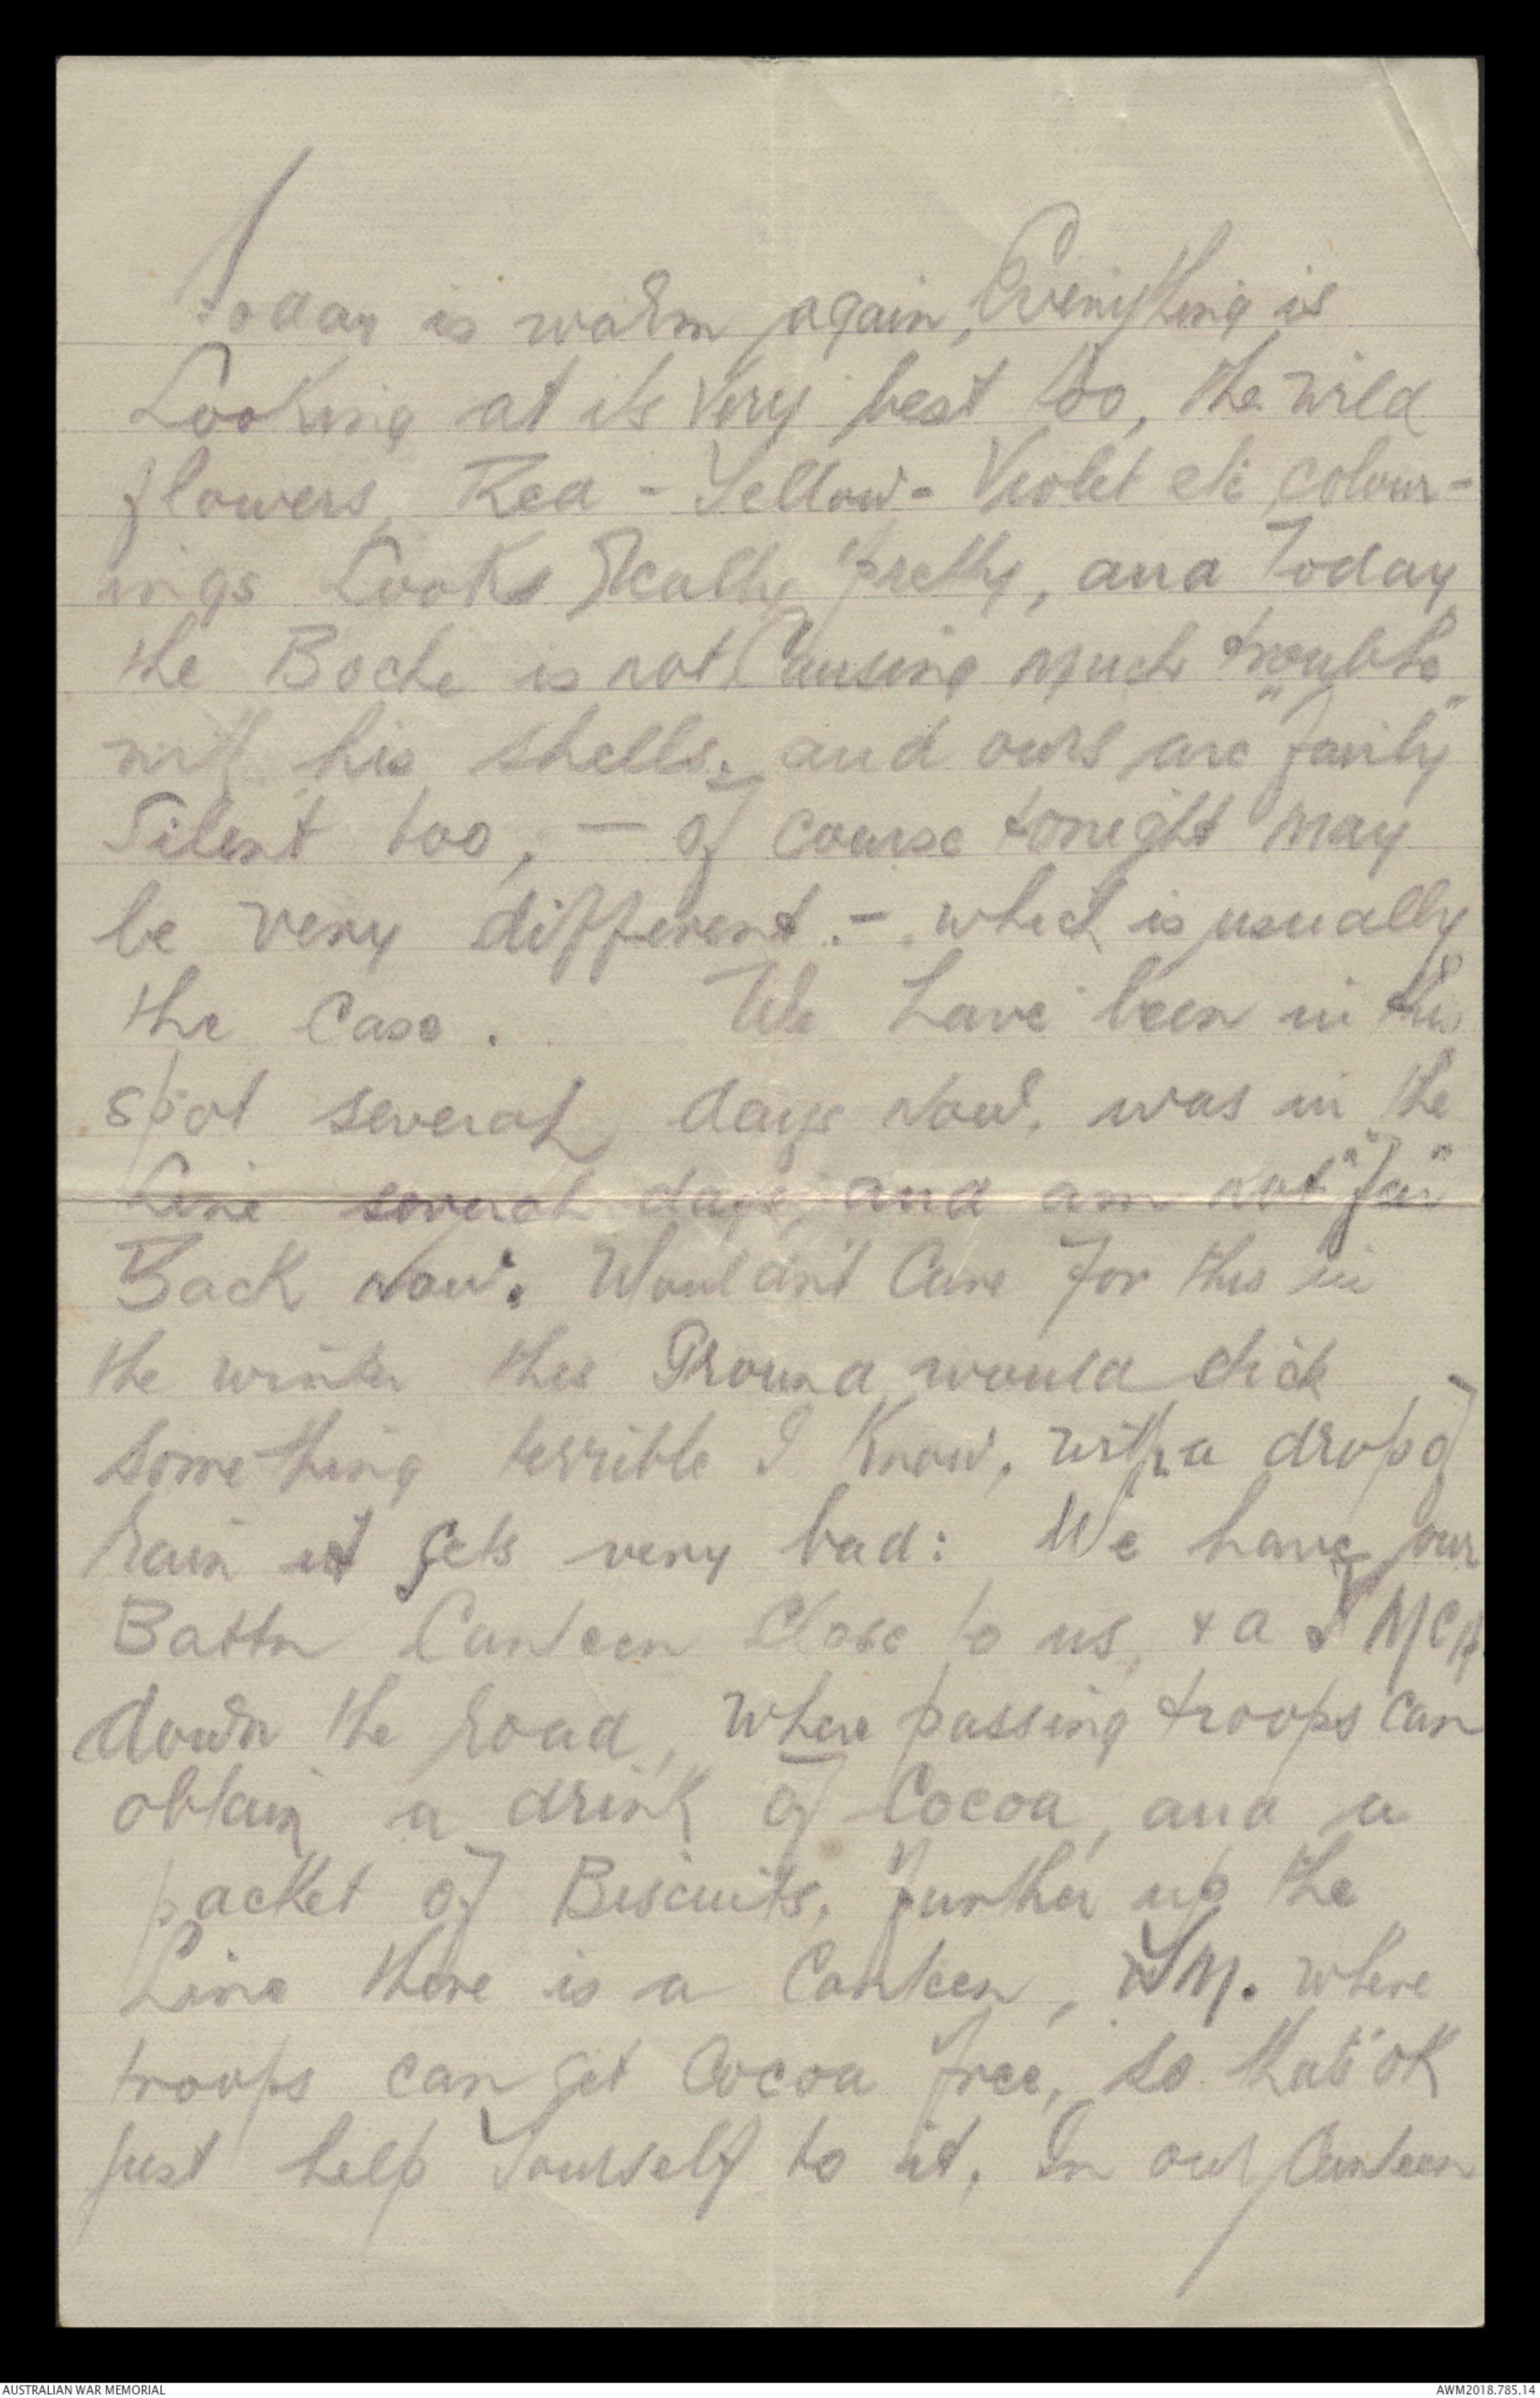 today is warm again, Everything is
Looking at its very best too, the wild
flowers, Red - Yellow - Violet etc colour-
ings Looks Really pretty, and Today
the Boche is not Causing much trouble
with his shells, and ours are "fairly"
Silent too, — of course tonight may
be very different. - which is usually
the Case. We have been in this
spot several days now. was in the
Line several days, and am not "far"
Back now. Wouldn't Care for this in
the winter this Ground would stick
something terrible I Know, with a drop of
rain it gets very bad: We have our
Battn Canteen Close to us, + a YMCA
down the road, where passing troops can
obtain a drink of Cocoa, and a
packet of Biscuits, further up the
Line there is a Canteen, YM. where
troops can get Cocoa free, so thats "OK
just help Yourself to it, In our Canteen
AUSTRALIAN WAR MEMORIAL
AWM2018.785.14